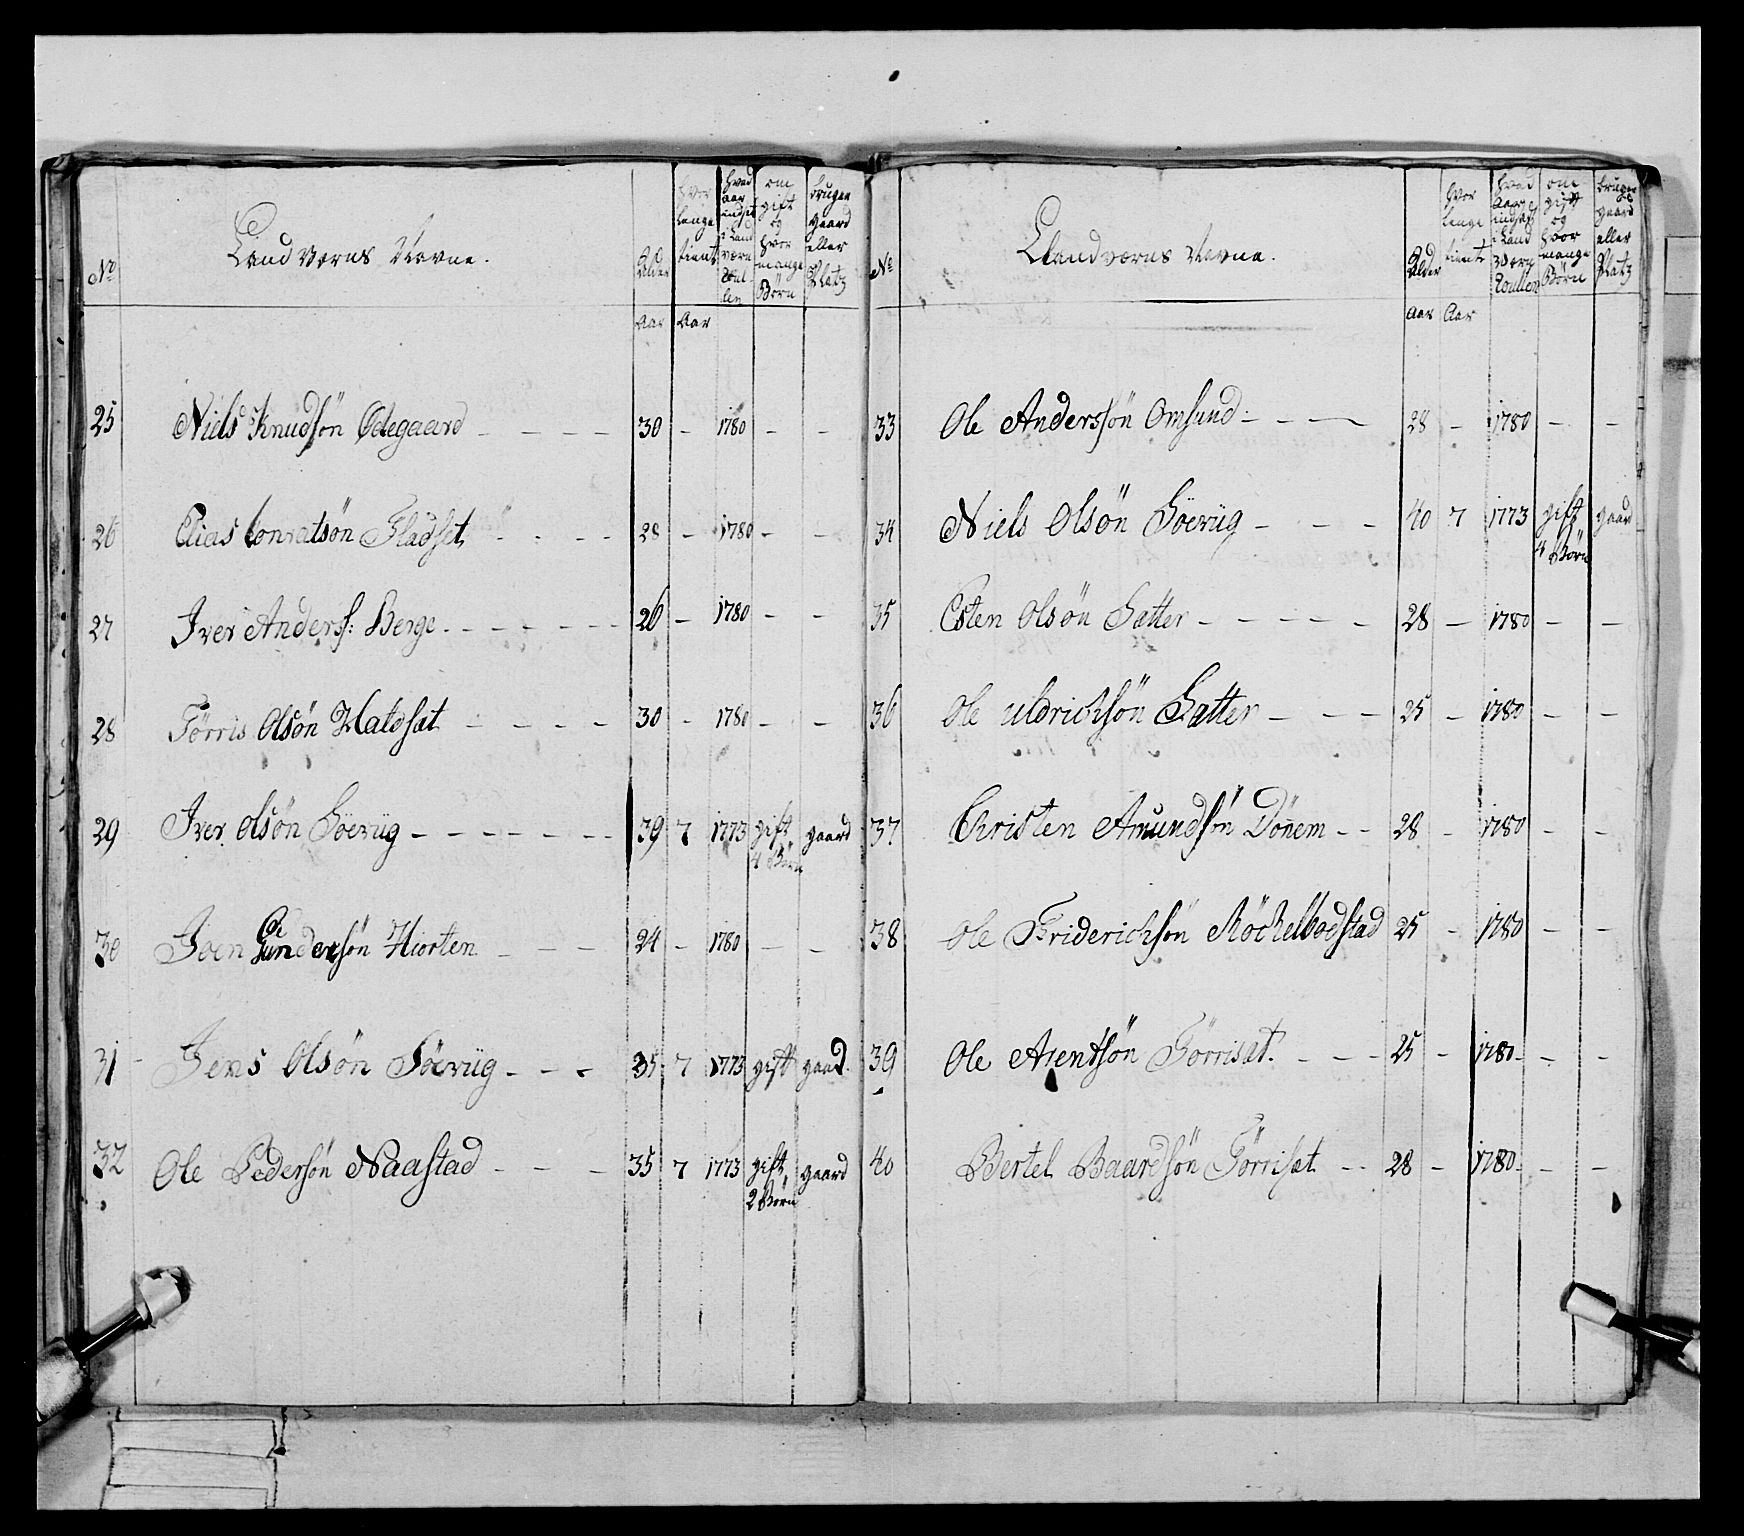 No
Land Værns Navne.
Alder
hvor længe tient
hvad aar indsat i Land værn Roullen
om gift og hvor mange Børn
bruger gaard eller Platz
Aar Aar
25 Niels Knudsön Ødegaard - - - - 30 - 1780 - -
26 Elias Conratsön Fladset - - - - 28 - 1780 - -
27 Iver Anders: Berge - - - - - - - 26 - 1780 - -
28 Törris Olsön Haldsæt - - - - 30 - 1780 - -
29 Iver Olsön Söevüg - - - - - - - 39 7 1773 gift gaard
4 Börn
30 Joen Gundersön Hiorten - - - 24 - 1780 - -
31 Jens Olsön Söevüg - - - 35 7 1773 gift gaard
32 Ole Pedersön Naastad - - - 35 7 1773 gift gaard
2 Börn
No
Landværns Navne.
Alder
hvor længe tient
hvad Aar indsat i Land Værn Roullen
om gift og hvor mange Börn
bruger gaard eller Platz
Aar Aar
33 Ole Anderssön Omsund - - - - 28 - 1780 - -
34 Niels Olsön Söevüg - - - 40 7 1773 gift gaard
4 Börn
35 Esten Olsön Sætter - - - - - 28 - 1780 - -
36 Ole Uldrichsön Sætter - - - 25 - 1780 - -
37 Christen Amundsön Dönem - - 28 - 1780 - -
38 Ole Friderichsön Röckelbodstad 25 - 1780 - -
39 Ole Arentsön Törrisæt - - - 25 - 1780 - -
40 Bertel Baardsön Törrisæt - - 28 - 1780 - -